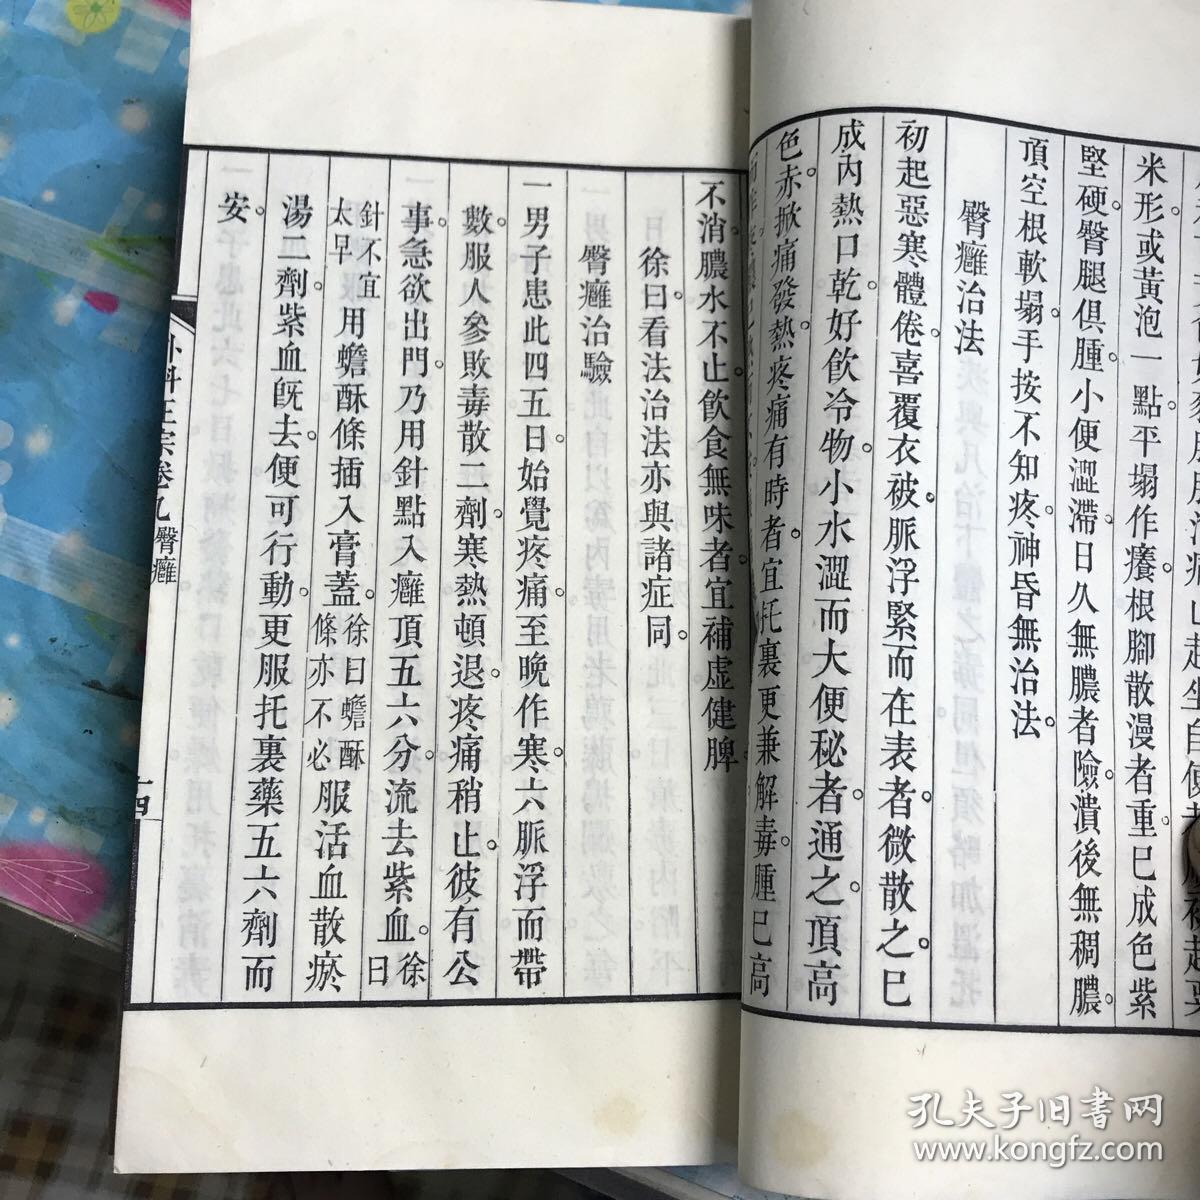 米形或黃泡一點平塌作癢根腳散漫者重已成色紫
堅硬臀腿俱腫小便澀滯日久無膿者險潰後無稠膿
頂空根軟塌手按不知疼神昏無治法
臀癰治法
初起惡寒體倦喜覆衣被脈浮緊而在表者微散之已
成內熱口乾好飲冷物小水澀而大便秘者通之頂高
色赤掀痛發熱疼痛有時者宜托裏更兼解毒腫已高
不消膿水不止飲食無味者宜補虛健脾
徐曰看法治法亦與諸症同
臀癰治驗
一男子患此四五日始覺疼痛至晚作寒六脈浮而帶
數服人參敗毒散二劑寒熱頓退疼痛稍止彼有公
事急欲出門乃用針點入癰頂五六分流去紫血徐曰
針不宜太早用蟾酥條插入膏蓋徐曰蟾酥條亦不必服活血散瘀
湯二劑紫血旣去便可行動更服托裏藥五六劑而
安
外科正宗卷九 臀癰
十四
孔夫子旧书网
www.kongfz.com